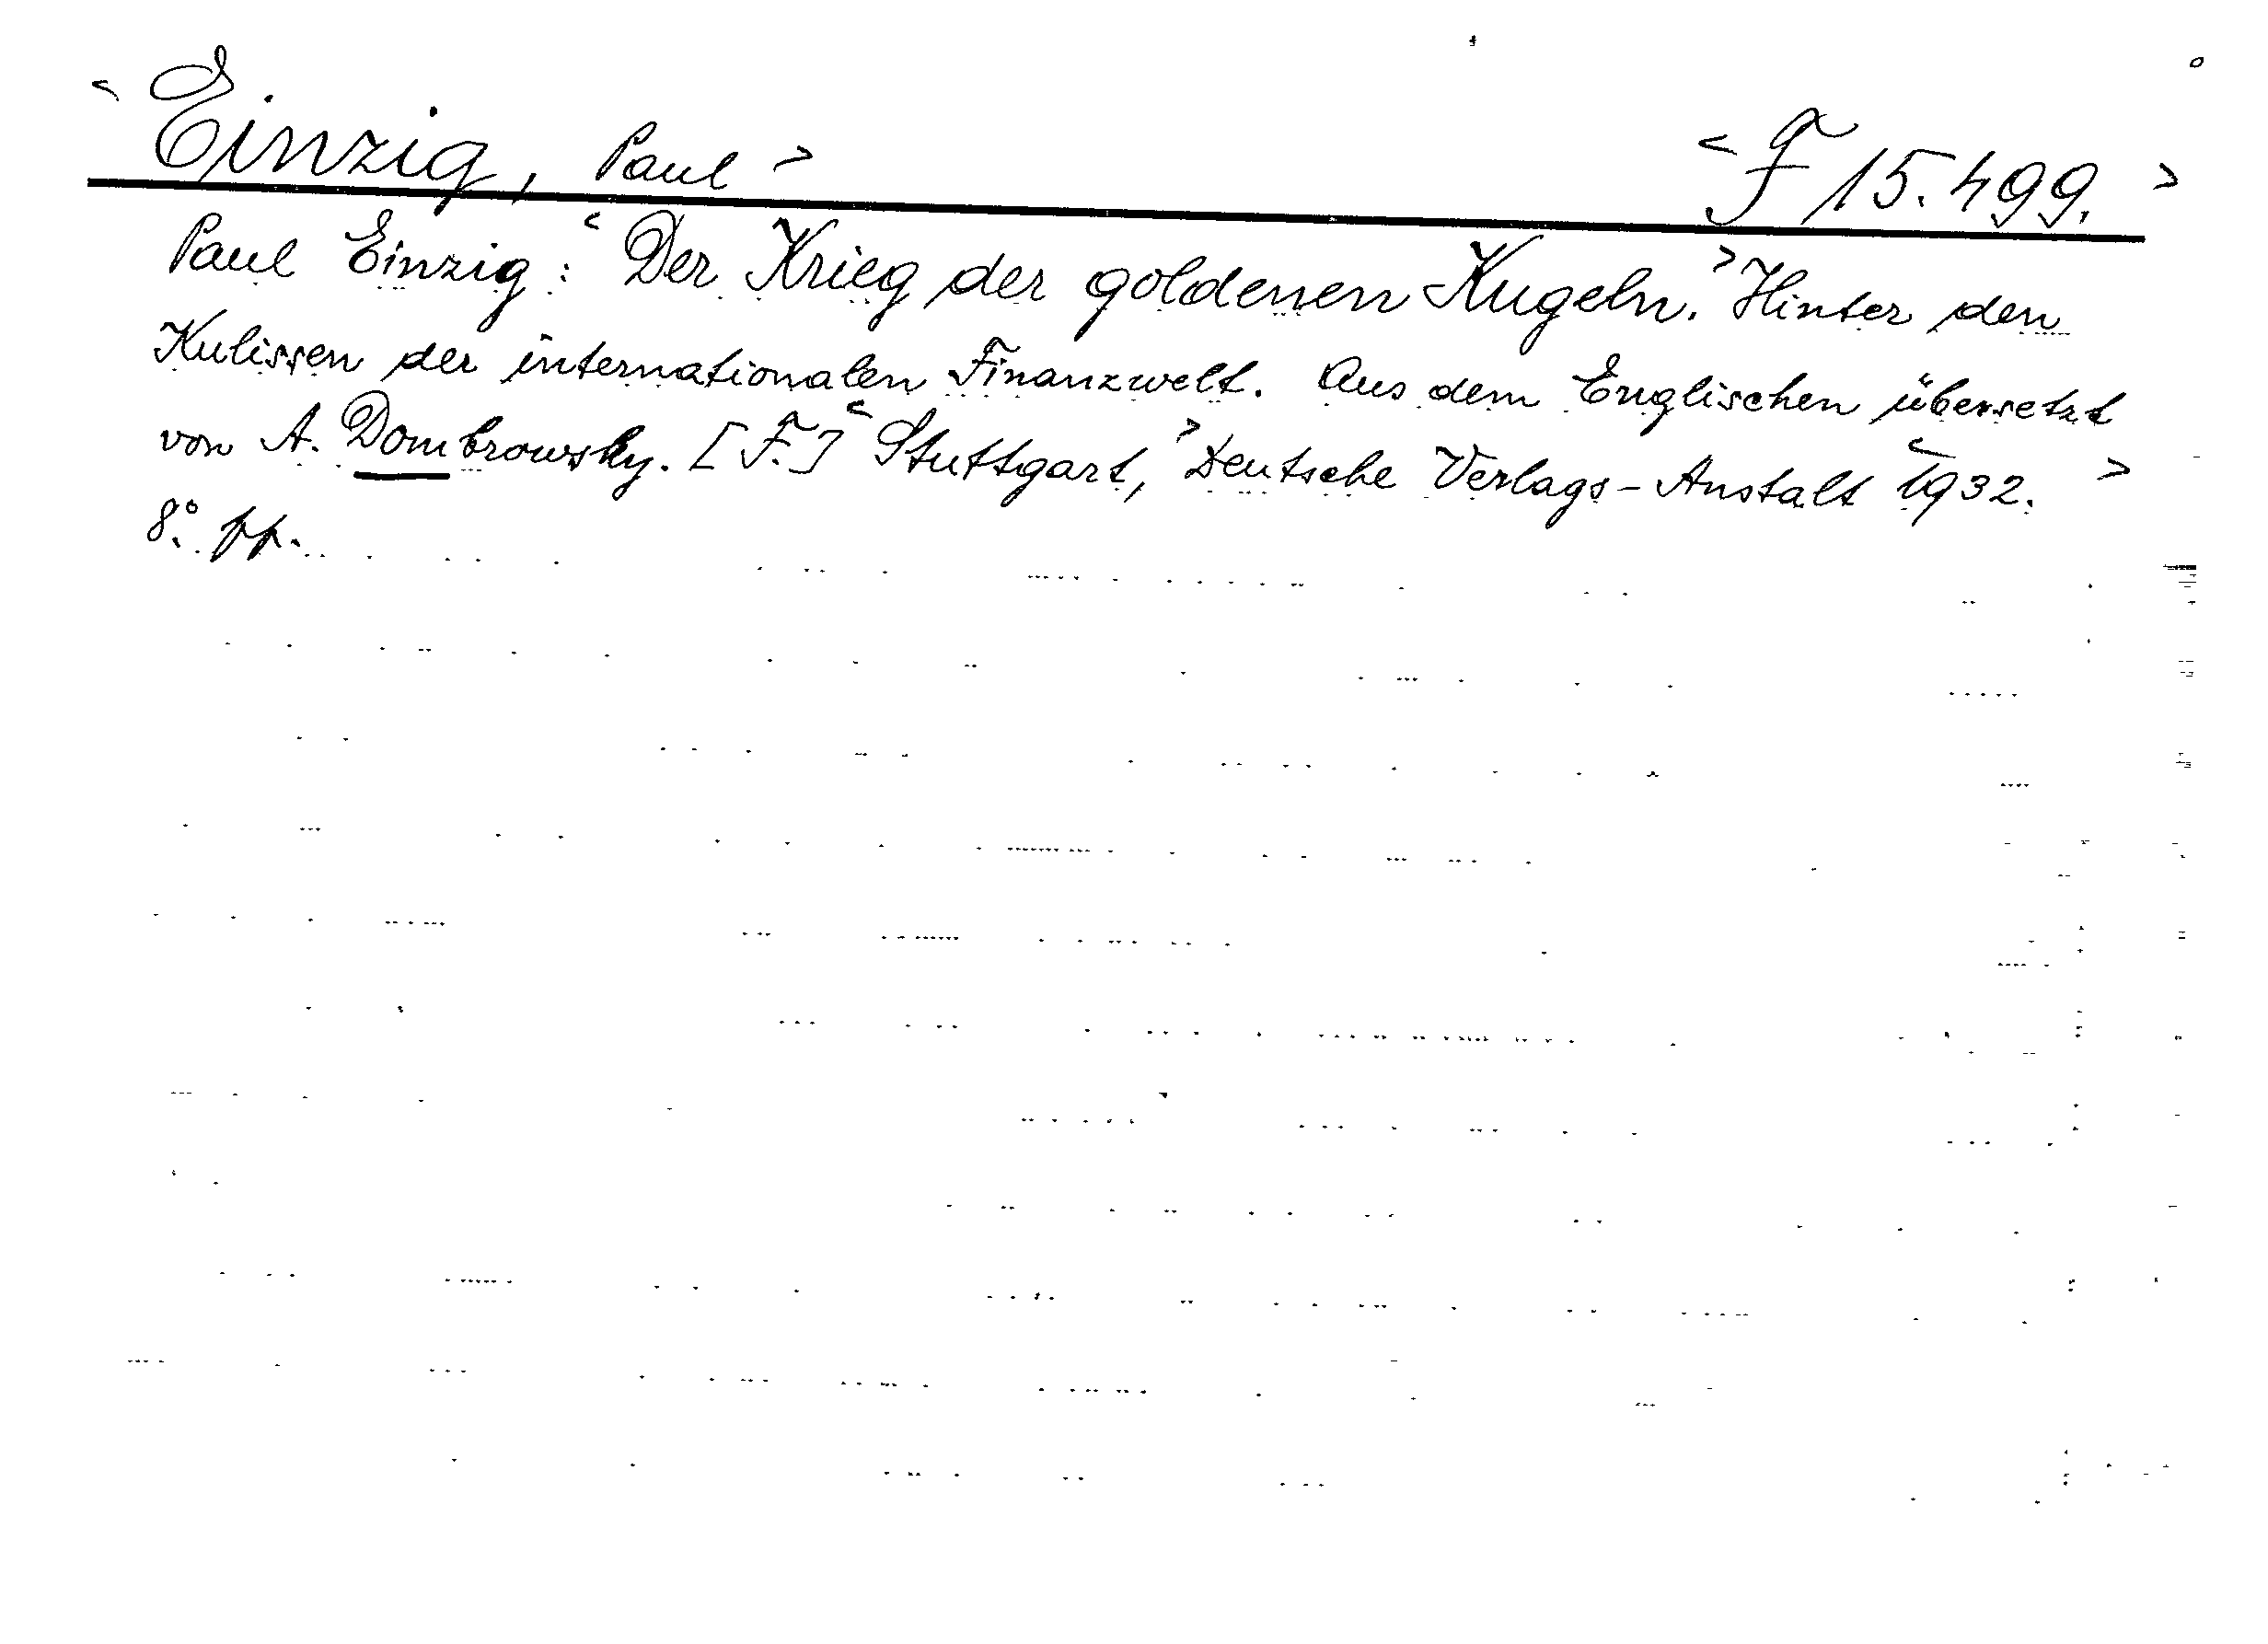 < Einzig, Paul > < F 15.499. >
Paul Einzig: < Der Krieg der goldenen Kugeln. > Hinter den
Kulissen der internationalen Finanzwelt. Aus dem Englischen übersetzt
von A. Dombrowsky. [F.] < Stuttgart, > Deutsche Verlags-Anstalt < 1932. >
8°. pp.